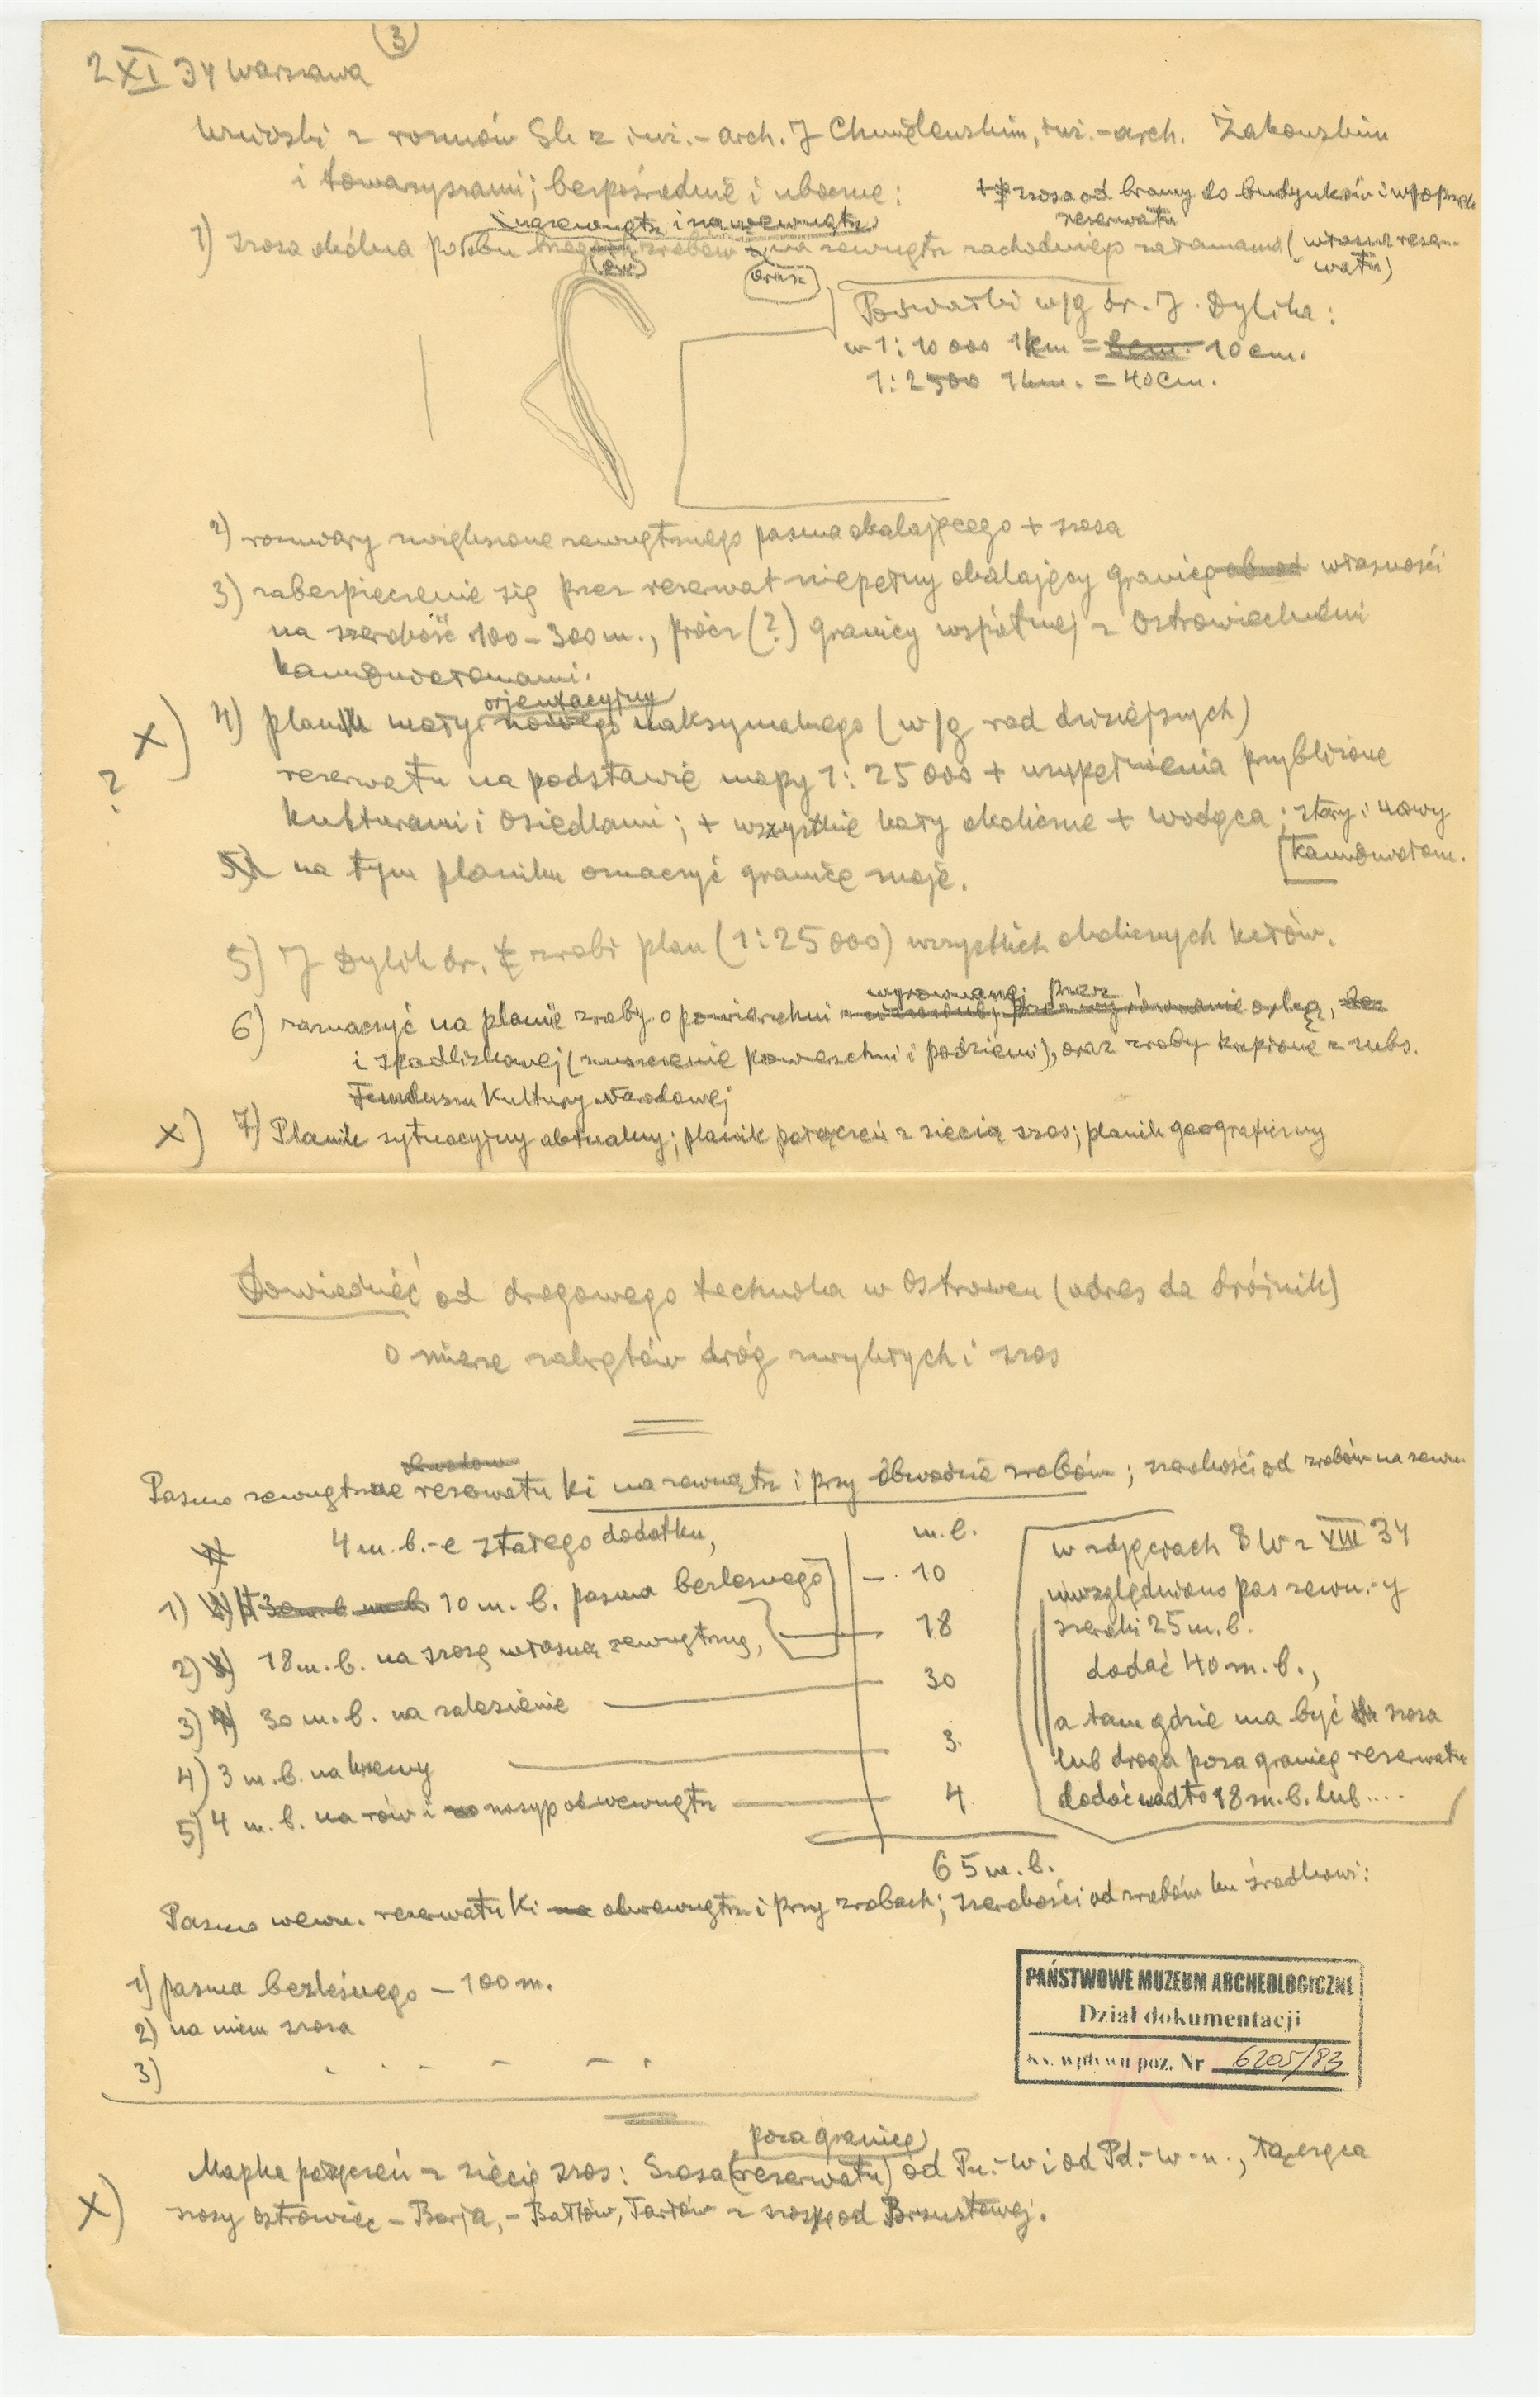 (3)
2 XI 34 Warszawa
Wnioski z rozmów Sb z inż.-arch. J Chmielewskim, inż.-arch. Żakowskim
i towarzyszami; bezpośrednie i uboczne:
+ szosa od bramy do budynków i w poprzek
rezerwatu
i nazewnątrz i nawewnątrz
1) szosa okólna po obu zrębów na zewnątrz zachodniego załamania (własna rezer-
watu)
oraz
Podziałki w/g dr. J. Dylika:
w 1:10 000 1km = 10 cm.
1:2500 1km. = 40 cm.
2) rozmiary zwiększone zewnętrznego pasma okalającego + szosa
3) zabezpieczenie się przez rezerwat niepełny okalający granicę własności
na szerokość 100-300 m., prócz (?) granicy wspólnej z Ostrowieckiemi
kamieniołomami.
orjentacyjny
X) 4) planik mały nowego maksymalnego (w/g rad dzisiejszych)
?
rezerwatu na podstawie mapy 1:25000 + uzupełnienia przybliżone
kulturami i osiedlami; + wszystkie koty okoliczne + wodąca; stary i nowy
kamieniołom.
na tym planiku oznaczyć granice moje.
5) J Dylik dr. zrobi plan (1:25000) wszystkich okolicznych kotów.
wyrównanej przez
6) zaznaczyć na planie zręby o powierzchni orkę,
i izpadliskowej (zniszczenie powierzchni i podziemi), oraz zręby kupione z subs.
Funduszu Kultury Narodowej
X) 7) Planik sytuacyjny aktualny; planik połączeń z siecią szos; planik geograficzny
Dowiedzieć od drogowego technika w Ostrowcu (adres da dróżnik)
o mierze zakrętów dróg zwykłych i szos
Pasmo zewnętrzne rezerwatu Ki na zewnątrz i przy obwodzie zrębów; szerokości od zrębów na zewn.
4 m.b.-e stałego dodatku,
m.b.
1) 10 m.b. pasma bezleśnego — 10
2) 18 m.b. na szosę własną zewnętrzną, — 18
3) 30 m.b. na zalesienie — 30
4) 3 m.b. na krzewy — 3
5) 4 m.b. na rów i nasyp od wewnątrz — 4
65 m.b.
w zdjęciach B W z VIII 34
uwzględniono pas zewn.-y
szeroki 25 m.b.
dodać 40 m.b.,
a tam gdzie ma być szosa
lub droga poza granicę rezerwatu
dodać nadto 18 m.b. lub ....
Pasmo wewn. rezerwatu Ki obwewnątrz i przy zrębach; szerokości od zrębów ku środkowi:
1) pasma bezleśnego — 100 m.
2) na niem szosa
3) - - - - - -
PAŃSTWOWE MUZEUM ARCHEOLOGICZNE
Dział dokumentacji
Ks. wpływu poz. Nr 6205/83
poza granicę
X) Mapka połączeń z siecią szos: Szosa (rezerwatu) od Pn.-W i od Pd.-W-n., łącząca
szosy Ostrowiec - Borja, - Bałtów, Tarłów z szosą od Brzustowej.